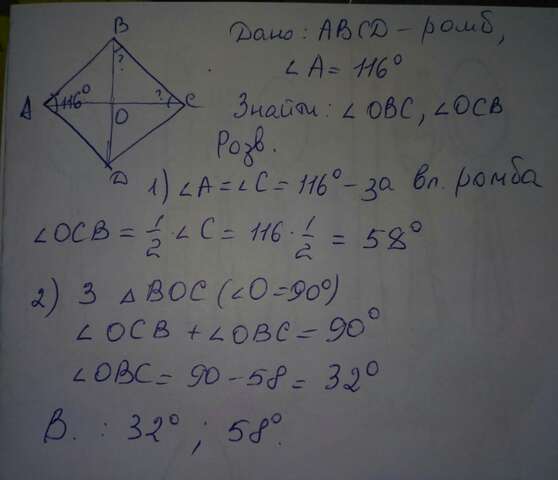 B
Дано: ABCD – ромб,
∠A = 116°
? 
A 116° ? C
O
D
Знайти: ∠OBC, ∠OCB
Розв.
1) ∠A = ∠C = 116° – за вл. ромба
∠OCB = 1/2 · ∠C = 116 · 1/2 = 58°
2) З △BOC (∠O = 90°)
∠OCB + ∠OBC = 90°
∠OBC = 90 – 58 = 32°
В. : 32° ; 58°.